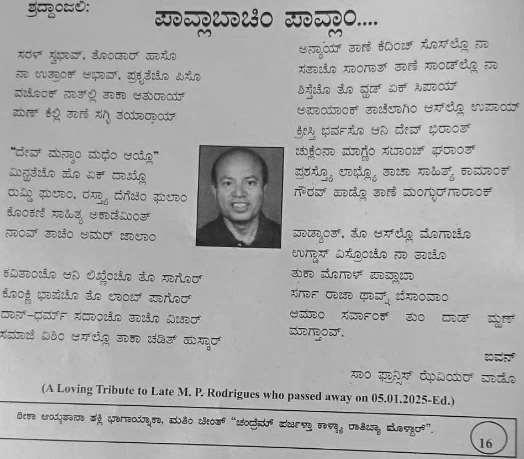 ಶ್ರದ್ಧಾಂಜಲಿ:
ಪಾವ್ಲಾಬಾಚಿಂ ಪಾವ್ಲಾಂ....
ಸರಳ್ ಸ್ವಭಾವ್, ತೊಂಡಾರ್ ಹಾಸೊ
ನಾ ಉತ್ರಾಂಕ್ ಅಭಾವ್, ಪ್ರಕೃತೆಚೊ ಪಿಸೊ
ವಚೊಂಕ್ ನಾತ್‌ಲ್ಲಿ ತಾಕಾ ಆತುರಾಯ್
ಪುಣ್ ಕೆಲ್ಲಿ ತಾಣೆ ಸಗ್ಳಿ ತಯಾರಾಯ್
"ದೇವ್ ಮನ್ಶಾಂ ಮಧೆಂ ಆಯ್ಲೊ"
ಮಿನ್ನತೆಚೊ ಹೊ ಏಕ್ ದಾಖ್ಲೊ
ಘುಲಾಂ, ರಸ್ತ್ಯಾ ದೆಗೆಚಿಂ ಘುಲಾಂ
ಕೊಂಕಣಿ ಸಾಹಿತ್ಯ ಅಕಾಡೆಮಿಂತ್
ನಾಂವ್ ತಾಚೆಂ ಅಮರ್ ಜಾಲಾಂ
ಕವಿತಾಂಚೊ ಆನಿ ಲಿಖ್ಣೆಂಚೊ ತೊ ಸಾಗೊರ್
ಕೊಂಕ್ಣಿ ಭಾಷೆಚೊ ತೊ ಲಾಂಬ್ ಪಾಗೊರ್
ದಾನ್-ಧರ್ಮ್ ಸದಾಂಚೊ ತಾಚೊ ವಿಚಾರ್
ಸಮಾಜೆ ವಿಶಿಂ ಆಸ್‌ಲ್ಲೊ ತಾಕಾ ಚಡಿತ್ ಹುಸ್ಕಾರ್
ಅನ್ಯಾಯ್ ತಾಣೆ ಕೆದಿಂಚ್ ಸೊಸ್‌ಲ್ಲೊ ನಾ
ಸತಾಚೊ ಸಾಂಗಾತ್ ತಾಣೆ ಸಾಂಡ್‌ಲ್ಲೊ ನಾ
ಶಿಸ್ತೆಚೊ ತೊ ವ್ಹಡ್ ಏಕ್ ಸಿಪಾಯ್
ಅಪಾಯಾಂಕ್ ತಾಚೆಲಾಗಿಂ ಆಸ್‌ಲ್ಲೊ ಉಪಾಯ್
ಕ್ರೀಸ್ತಿ ಭರ್ವಸೊ ಆನಿ ದೇವ್ ಭಿರಾಂತ್
ಚುಕ್ಲೆಂನಾ ಮಾಗ್ಣೆಂ ಸಬಾಂಚ್ ಘರಾಂತ್
ಪ್ರಶಸ್ತ್ಯೊ ಲಾಭ್ಲ್ಯೊ ತಾಚಾ ಸಾಹಿತ್ಯ್ ಕಾಮಾಂಕ್
ಗೌರವ್ ಹಾಡ್ಲೊ ತಾಣೆ ಮಂಗ್ಳುರ್‌ಗಾರಾಂಕ್
ವಾಡ್ಯಾಂತ್, ತೊ ಆಸ್‌ಲ್ಲೊ ಮೊಗಾಚೊ
ಉಗ್ಡಾಸ್ ವಿಸ್ರೊಂಚೊ ನಾ ತಾಚೊ
ತುಕಾ ಮೊಗಾಳ್ ಪಾವ್ಲಾಬಾ
ಸರ್ಗಾ ರಾಜಾ ಥಾವ್ನ್ ಬೆಸಾಂವಾಂ
ಆಮಾಂ ಸರ್ವಾಂಕ್ ತುಂ ದಾಡ್ ಮ್ಹಣ್
ಮಾಗ್ತಾಂವ್.
ಐವನ್
ಸಾಂ ಫ್ರಾನ್ಸಿಸ್ ಝೆವಿಯರ್ ವಾಡೊ
(A Loving Tribute to Late M. P. Rodrigues who passed away on 05.01.2025-Ed.)
ಠೀಕಾ ಆಯ್ಕತಾನಾ ತಕ್ಲಿ ಭಾಗಾಯ್ನಾಕಾ, ಮತಿಂ ಚಿಂತ್ "ಚಂದ್ರೆಮ್ ಪರ್ಜಳ್ತಾ ಕಾಳ್ಕ್ಯಾ ರಾತಿಚ್ಯಾ ಮೊಳ್ಬಾರ್".
16